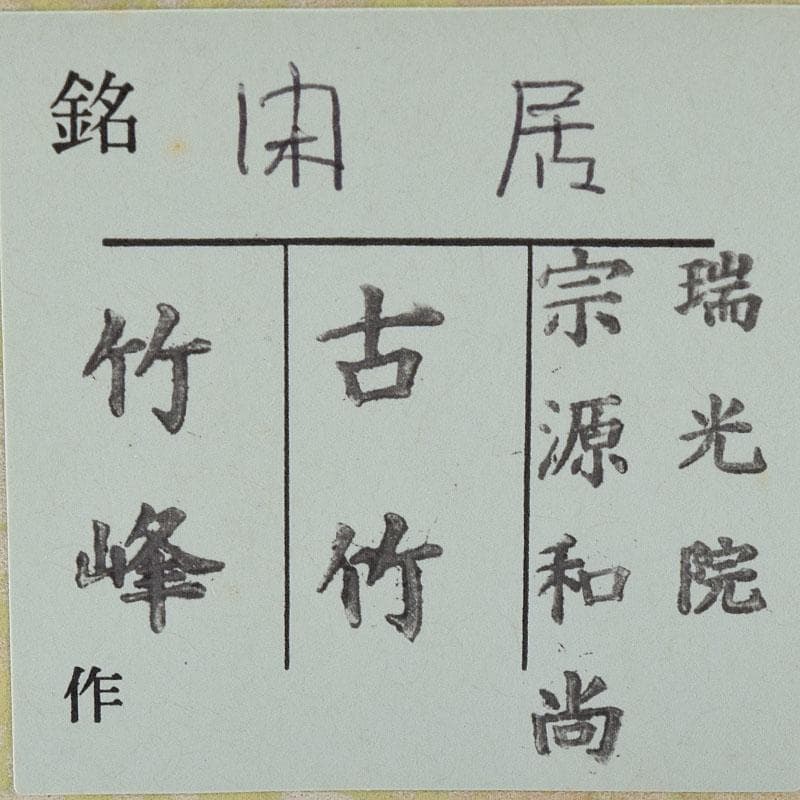 銘 閑居
瑞光院
宗源和尚
古竹
竹峰 作